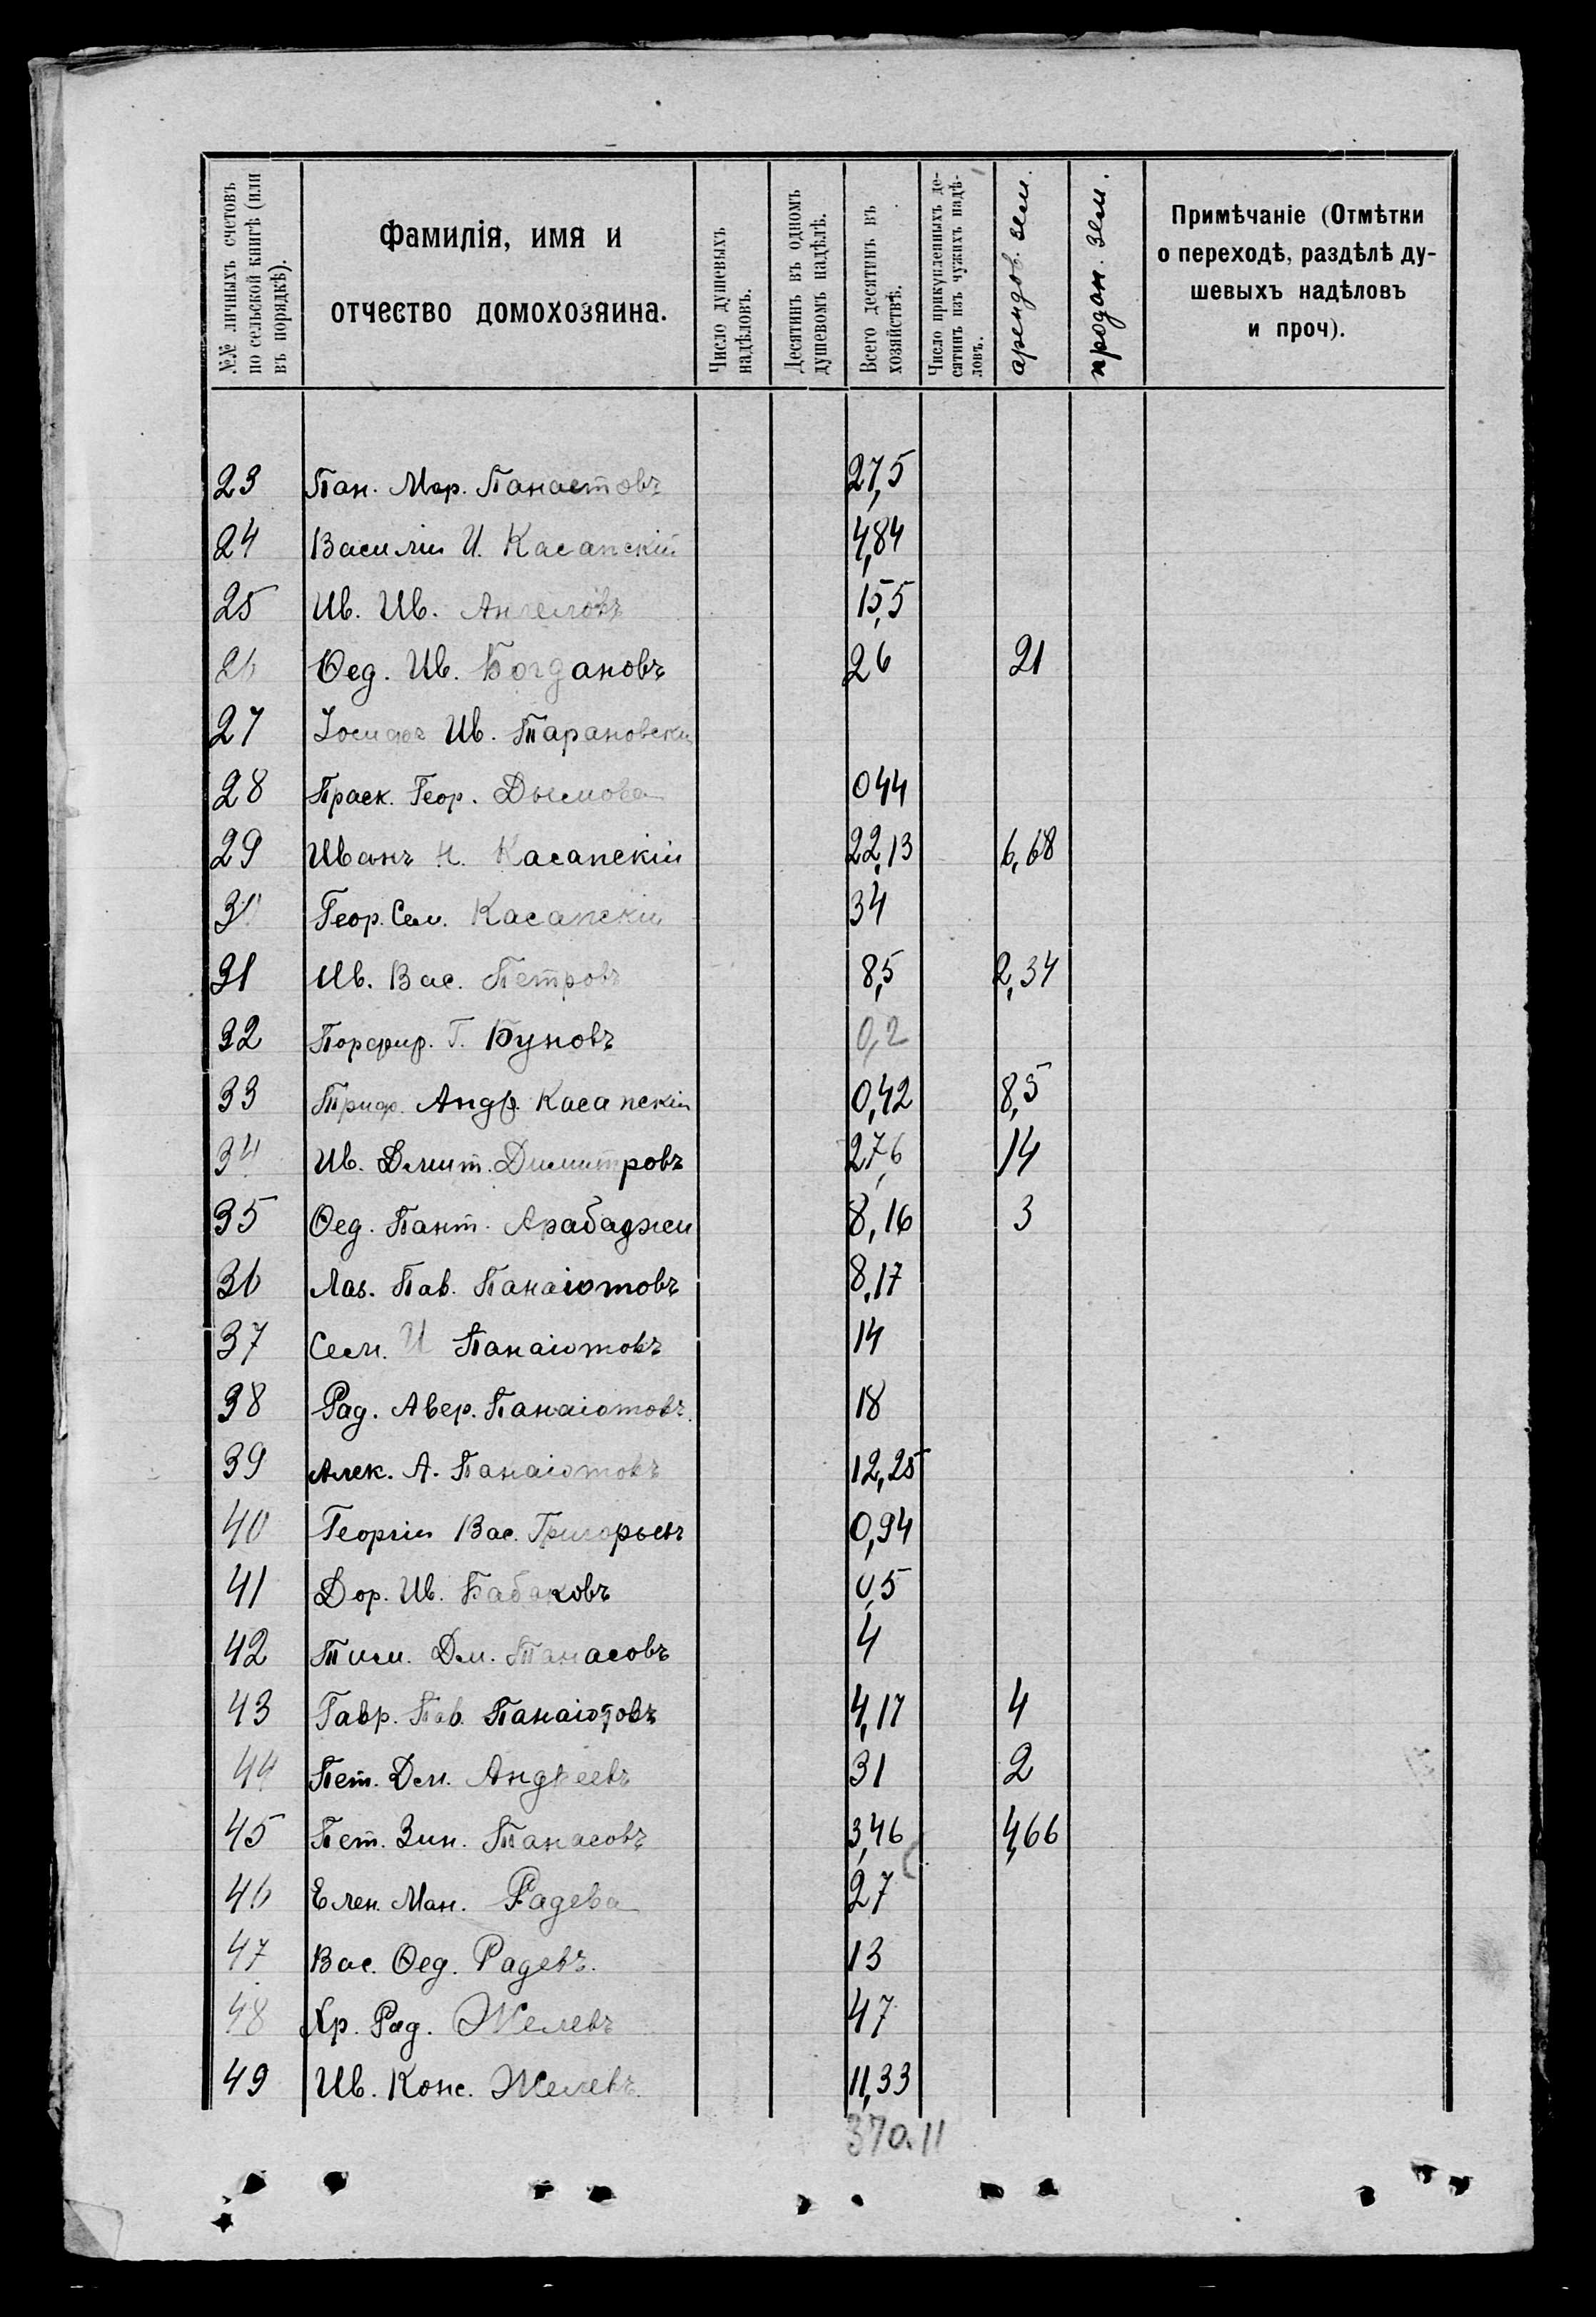 №№ личныхъ счетовъ по сельской книгѣ (или въ порядкѣ).
Фамилія, имя и отчество домохозяина.
Число душевыхъ надѣловъ.
Десятинъ въ одномъ душевомъ надѣлѣ.
Всего десятинъ въ хозяйствѣ.
Число прикупленныхъ десятинъ изъ чужихъ надѣловъ.
арендов. зем.
продан. зем.
Примѣчаніе (Отмѣтки о переходѣ, раздѣлѣ душевыхъ надѣловъ и проч).
23 Пан. Мар. Панаетовъ 27,5
24 Василій И. Касапскій 4,84
25 Ив. Ив. Ангеловъ 15,5
26 Ѳед. Ив. Богдановъ 26 21
27 Іосифъ Ив. Тарановски
28 Праск. Геор. Дымова 044
29 Иванъ Н. Касапскій 22,13 6,68
30 Геор. Сем. Касапскій 34
31 Ив. Вас. Петровъ 8,5 2,34
32 Порфир. Г. Буновъ 0,2
33 Триф. Андр. Касапскій 0,42 8,5
34 Ив. Дмит. Димитровъ 27,6 14
35 Ѳед. Пант. Арабаджи 8,16 3
36 Лаз. Пав. Панаіотовъ 8,17
37 Сем. И Панаіотовъ 14
38 Рад. Авер. Панаіотовъ 18
39 Алек. А. Панаіотовъ 12,25
40 Георгій Вас. Григорьевъ 0,94
41 Дор. Ив. Бабаковъ 0,5
42 Тим. Дм. Танасовъ 4
43 Гавр. Пав. Панаіотовъ 4,17 4
44 Пет. Дем. Андреевъ 31 2
45 Пет. Зин. Танасовъ 3,46 4,66
46 Елен. Ман. Радева 27
47 Вас. Ѳед. Радевъ. 13
48 Хр. Рад. Желевъ 47
49 Ив. Конс. Желевъ 11,33
370.11